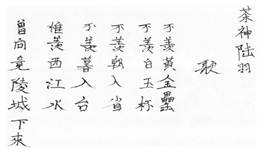 茶神陸羽
歌
不羨黃金罍
不羨白玉杯
不羨朝入省
不羨暮入台
惟羨西江水
曾向竟陵城下來